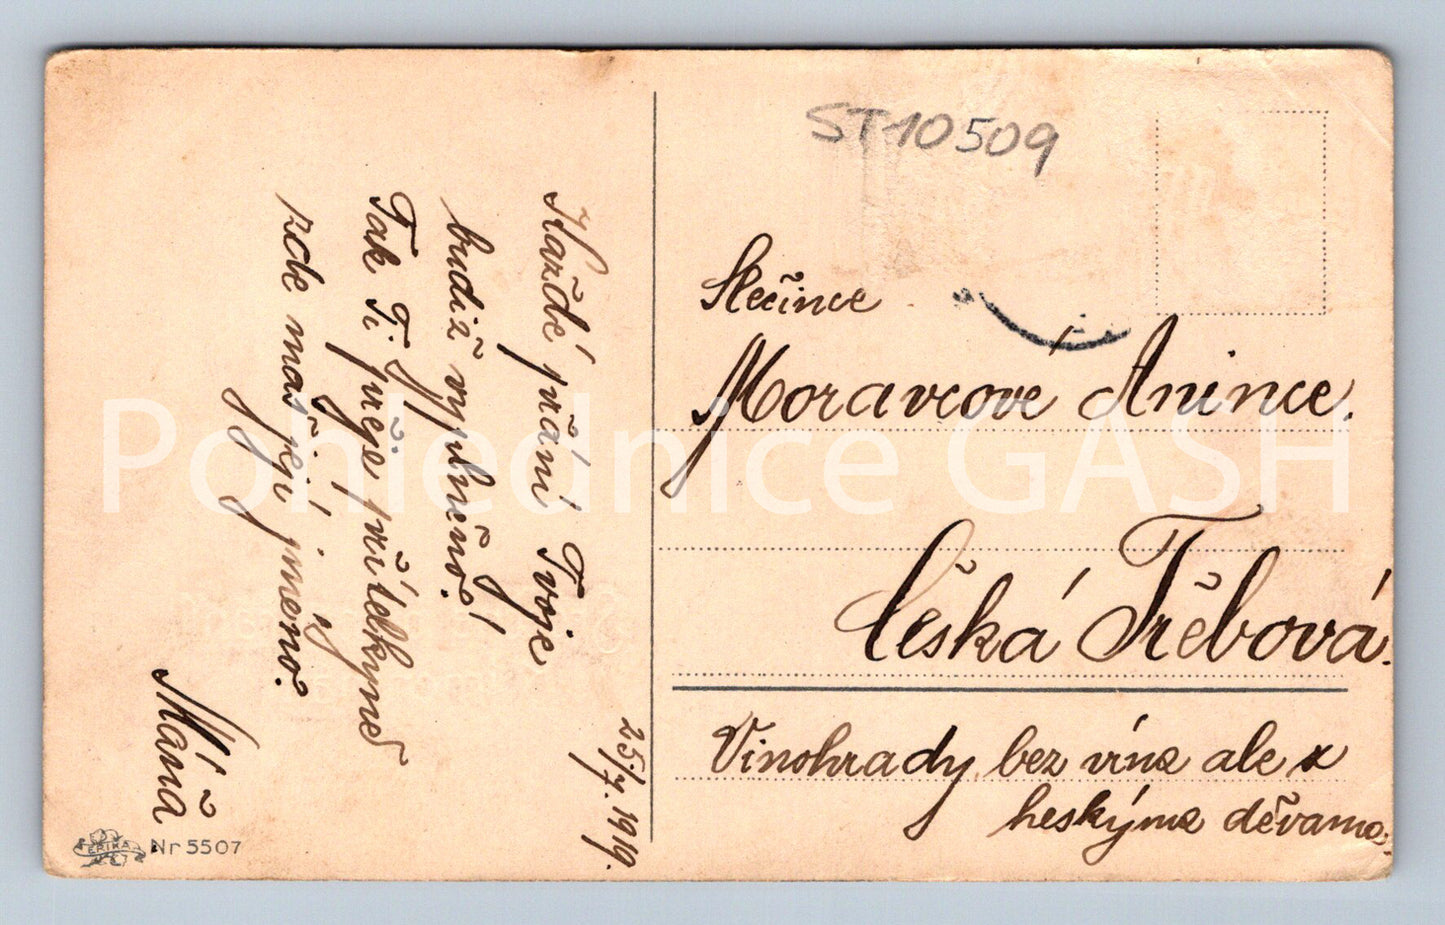 ST10509
Slečince
Moravcové Anince.
Česká Třebová.
Vinohrady bez vína ale s
heskýma děvama.
25/7. 1919.
Každé přání Tvoje
budiž vyplněno!
Tak Ti přeje přítelkyně
zde máš její jméno.
Máňa
ERIKA Nr 5507
Pohlednice GASH